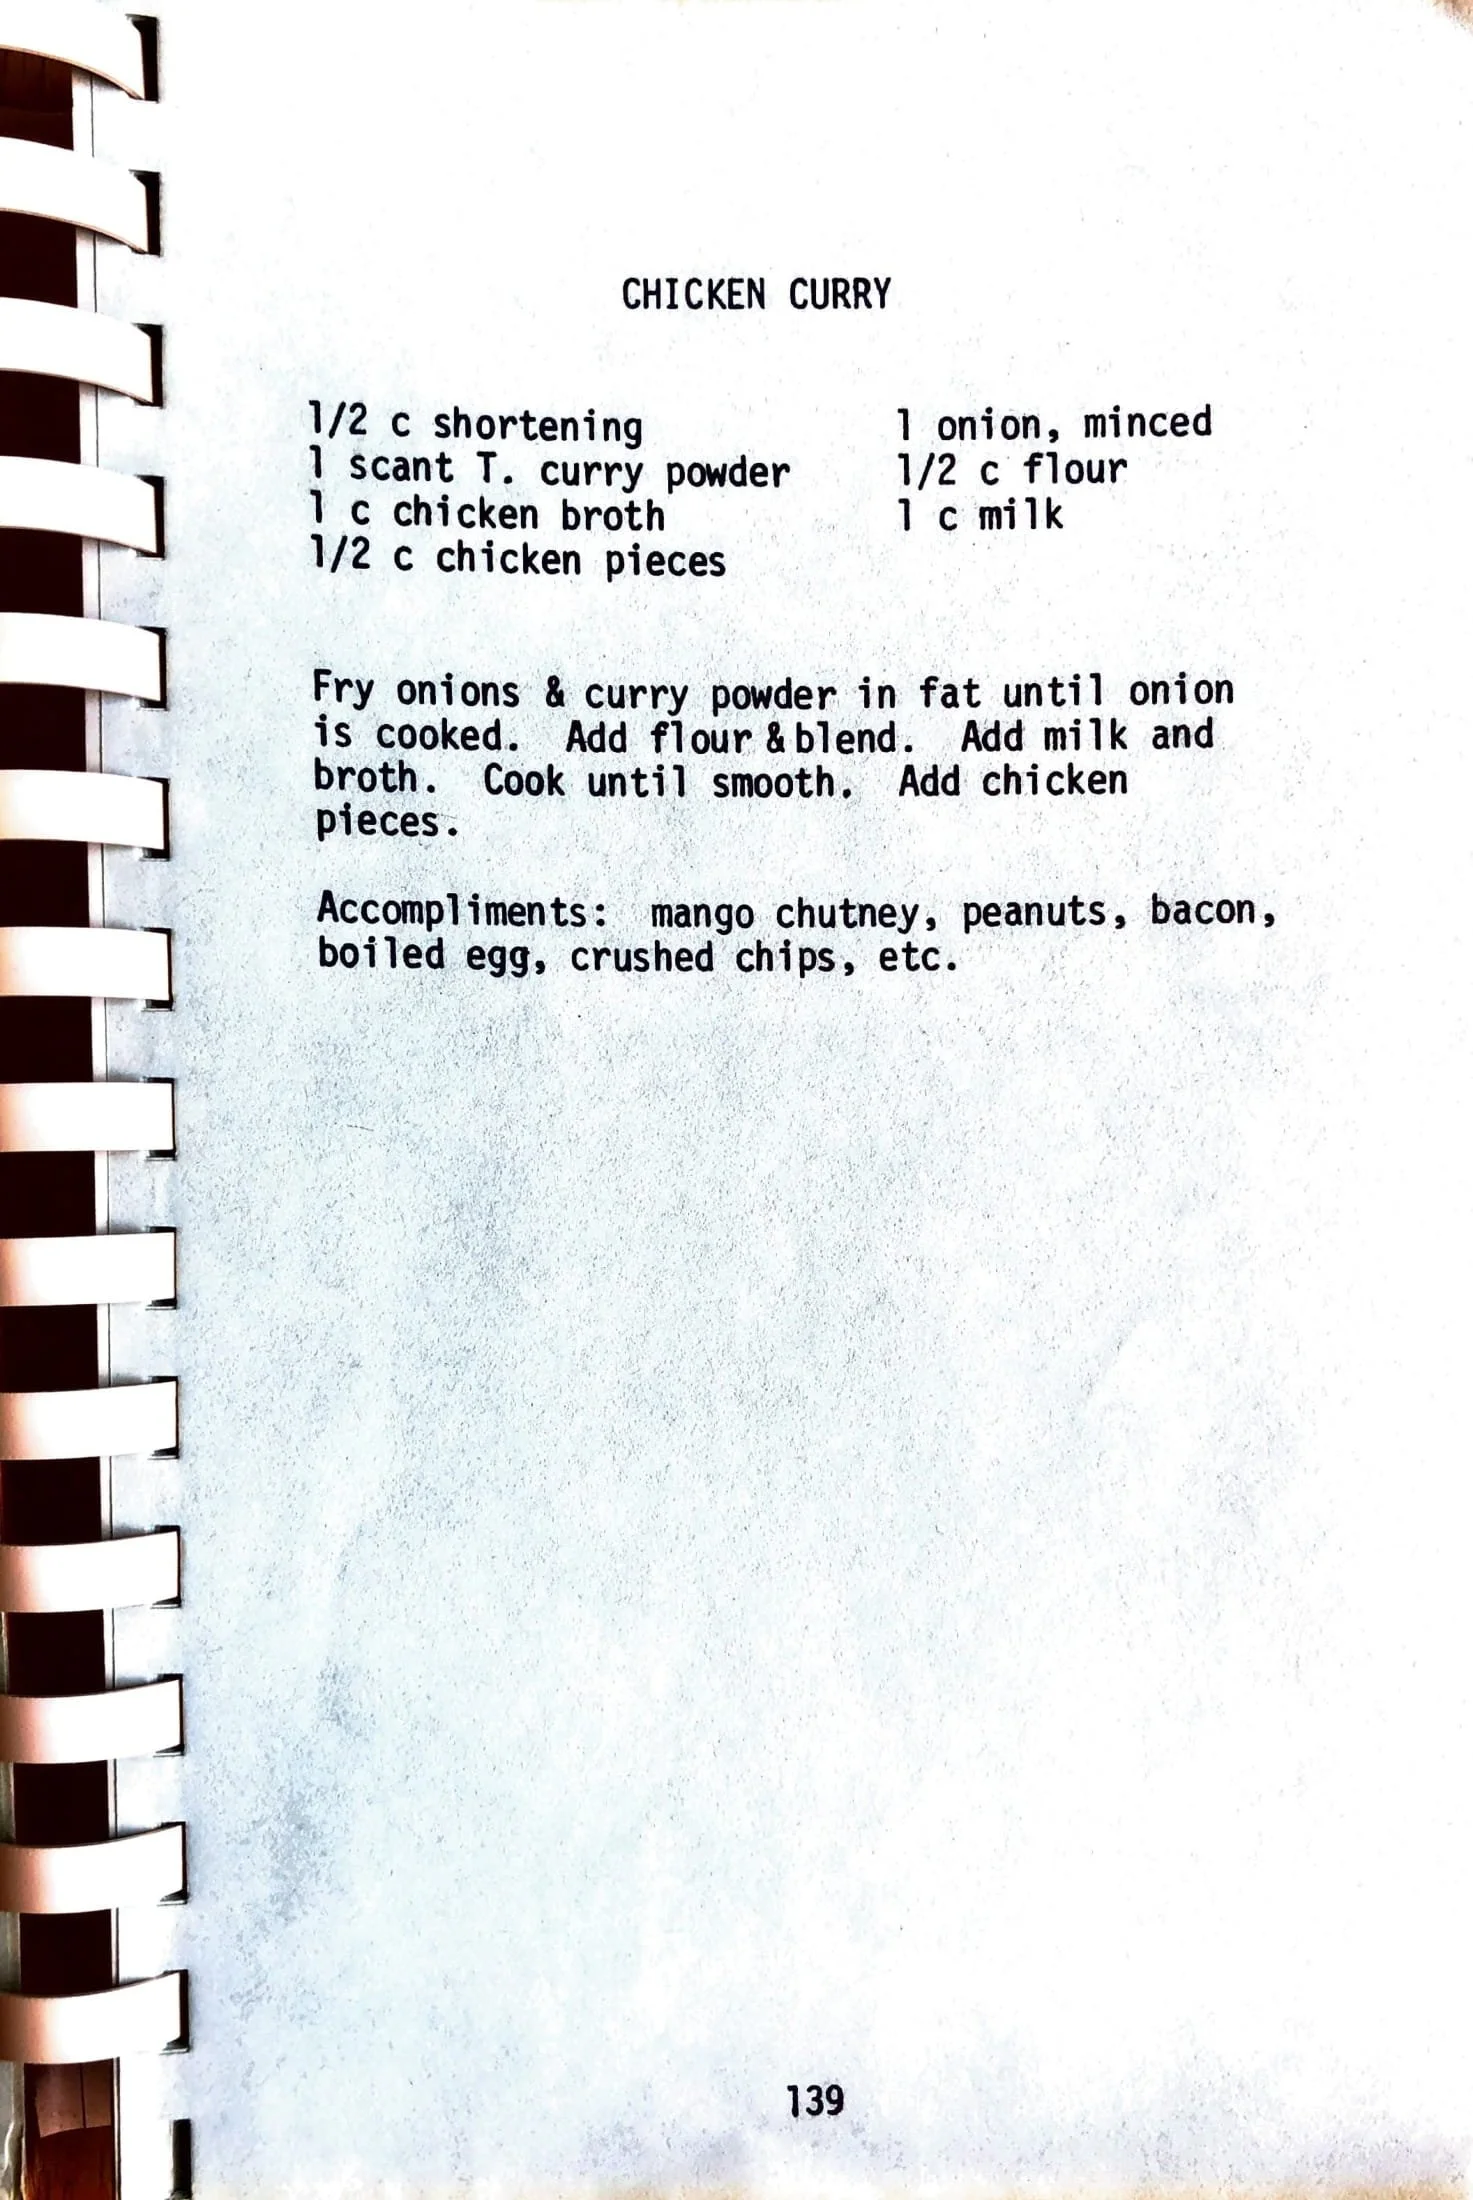 CHICKEN CURRY
1/2 c shortening
1 scant T. curry powder
1 c chicken broth
1/2 c chicken pieces
1 onion, minced
1/2 c flour
1 c milk
Fry onions & curry powder in fat until onion
is cooked. Add flour & blend. Add milk and
broth. Cook until smooth. Add chicken
pieces.
Accompliments: mango chutney, peanuts, bacon,
boiled egg, crushed chips, etc.
139